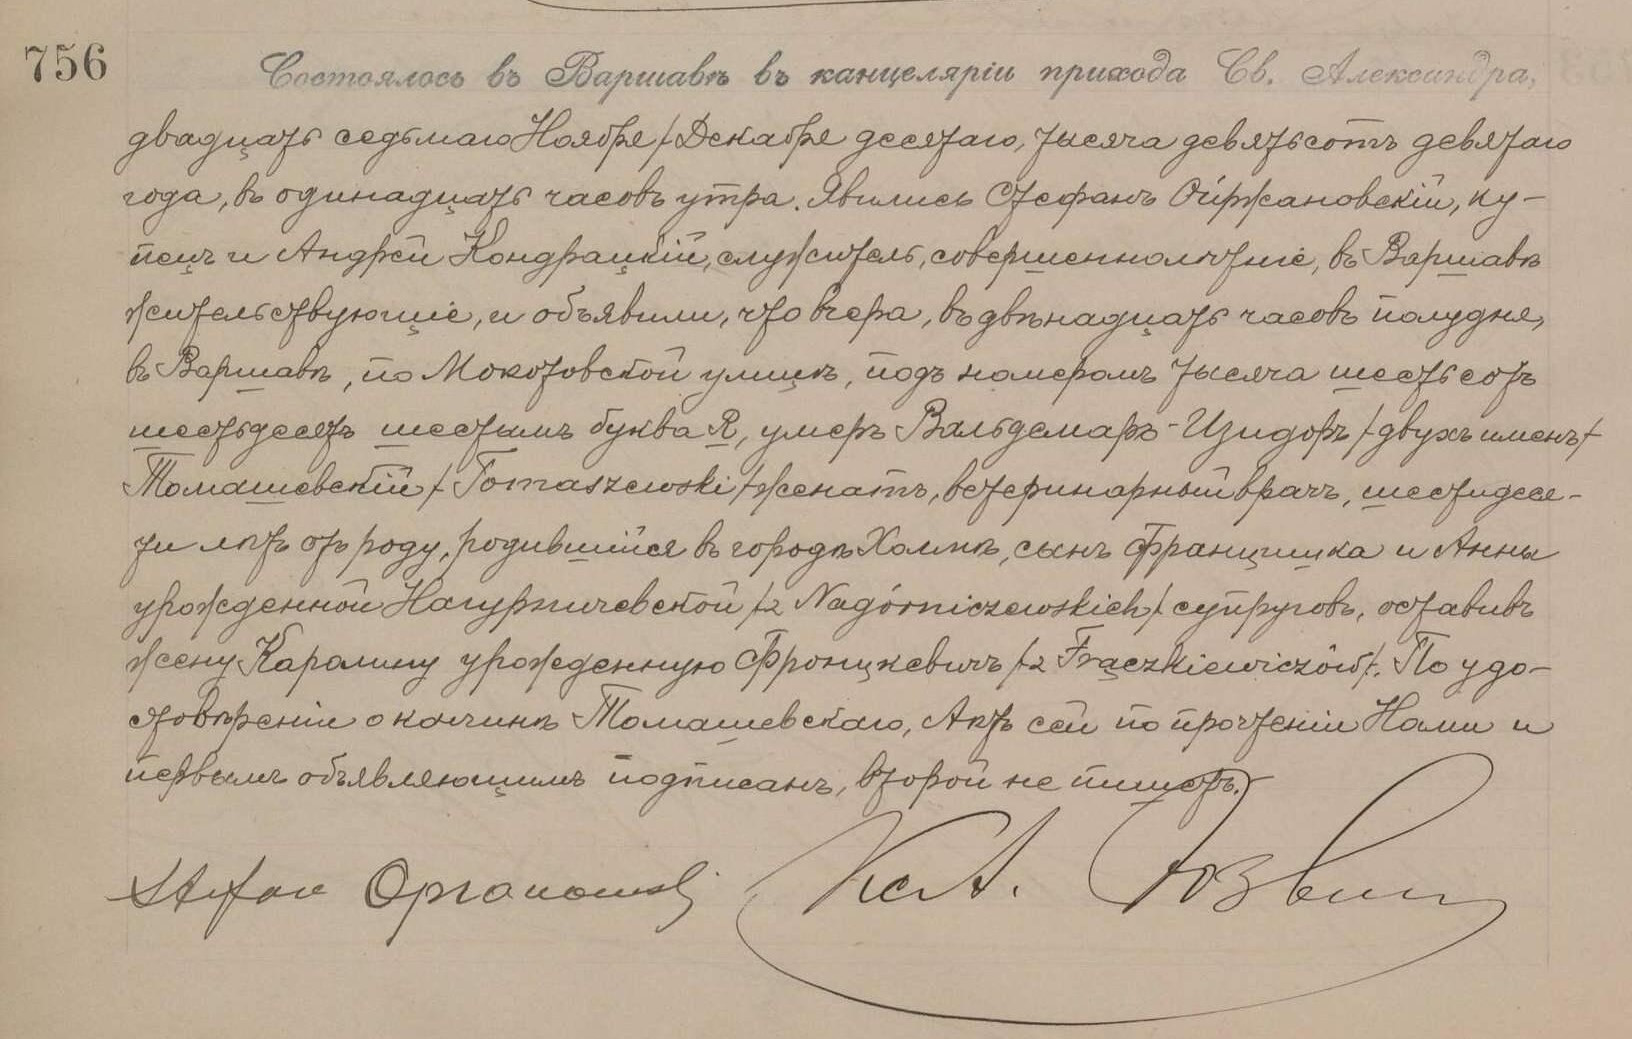 756
Состоялось въ Варшавѣ въ канцеляріи прихода Св. Александра,
двадцать седьмаго Ноября /Декабря десятаго, тысяча девятьсотъ девятаго
года, въ одинадцать часовъ утра. Явились Стефанъ Ойржановскій, ку-
пецъ и Андрей Кондрацкій, служитель, совершеннолѣтніе, въ Варшавѣ
жительствующіе, и объявили, что вчера, въ двѣнадцать часовъ полудня,
въ Варшавѣ, по Мокотовской улицѣ, подъ номеромъ тысяча шестьсотъ
шестьдесятъ шестымъ буква R, умеръ Вальдемаръ-Изидоръ /двухъ именъ/
Томашевскій /Tomaszewski/ женатъ, ветеринарный врачъ, шестидеся-
ти лѣтъ отъ роду, родившійся въ городѣ Холмѣ, сынъ Францишка и Анны
урожденной Нагурничевской /z Nagórniczewskich/ супруговъ, оставивъ
жену Каролину урожденную Фронцкевичъ /z Frączkiewiczów/. По удо-
стовѣреніи о кончинѣ Томашевскаго, Актъ сей по прочтеніи Нами и
первымъ объявляющимъ подписанъ, второй не пишетъ.
Stefan
Кс. А.